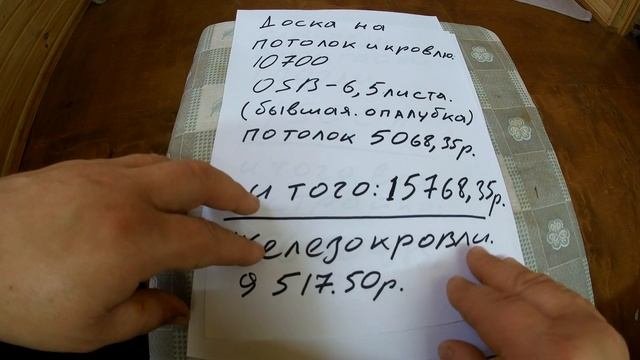 Доска на
потолок и кровлю.
10700
OSB-6,5листа.
(бывшая.опалубка)
потолок 5068,35р.
итого:15768,35р.
железо кровли.
9 517.50р.